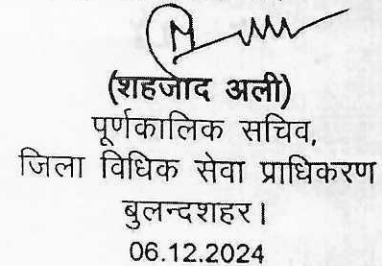 (शहजाद अली)
पूर्णकालिक सचिव,
जिला विधिक सेवा प्राधिकरण
बुलन्दशहर।
06.12.2024